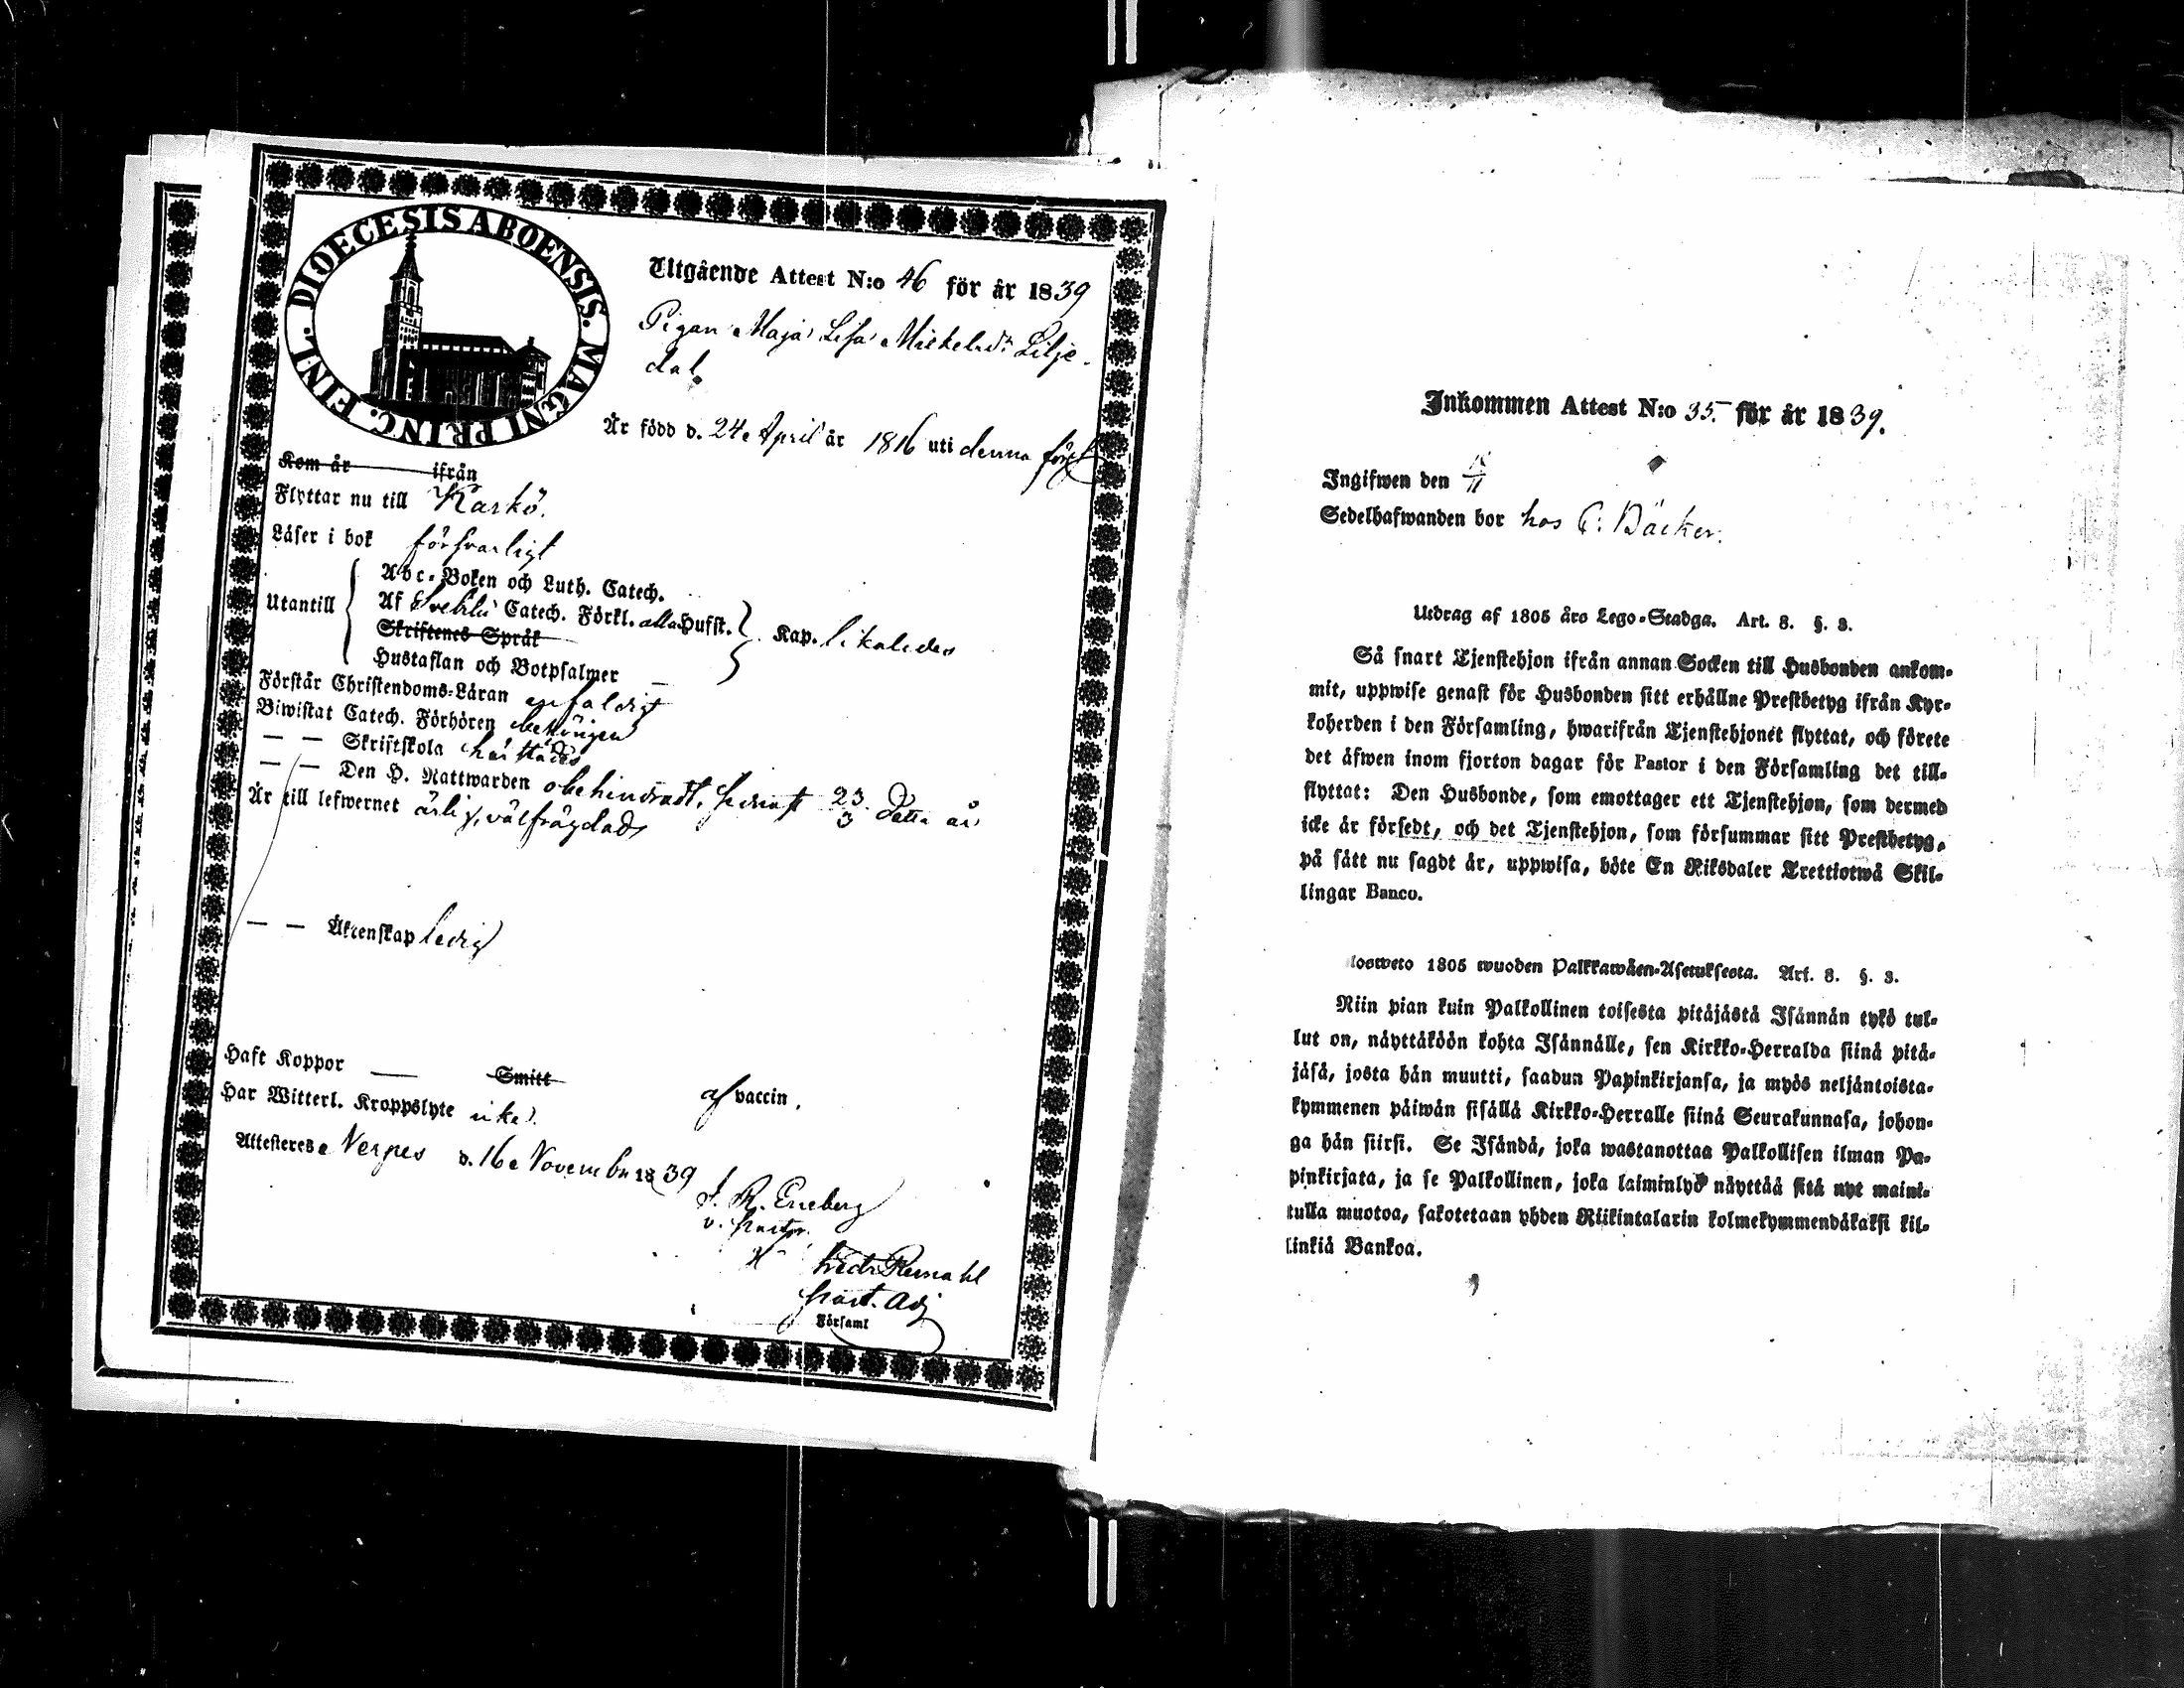 DIOECESIS ABOENSIS. MAGNI PRINC. FINL.
Utgående Attest N:o 46 för år 1839
Pigan Maja Lisa Mickelsdr Lilje-
dal
Är född d. 24 April år 1816 uti denna förs
Kom år ifrån
Flyttar nu till Kaskö.
Läser i bok försvarligt
Utantill
Abc-Boken och Luth. Catech.
Af Svebilii Catech. Förkl. alla Hufst.
Skriftenes Språk
Hustaflan och Botpsalmer
Kap. likaledes
Förstår Christendoms-Läran enfaldigt
Biwistat Catech. Förhören behörigen
— — Skriftskola härstädes
— — Den H. Nattwarden obehindradt, senast 23/3 detta år
Är till lefwernet ärlig, välfrägdad
— — Äktenskap ledig
Haft Koppor — Smitt af vaccin.
Har Witterl. Kroppslyte icke.
Attesteres Nerpes d. 16 November 1839
v. Pastor
Past. Adj
Församl
Inkommen Attest N:o 35. för år 1839.
Ingifwen den
Sedelhafwanden bor hos C: Bäcker.
Utdrag af 1805 års Lego-Stadga. Art. 8. §. 3.
Så snart Tjenstehjon ifrån annan Socken till Husbonden ankom-
mit, uppwise genast för Husbonden sitt erhållne Prestbetyg ifrån Kyr-
koherden i den Församling, hwarifrån Tjenstehjonet flyttat, och förete
det äfwen inom fjorton dagar för Pastor i den Församling det till-
flyttat: Den Husbonde, som emottager ett Tjenstehjon, som dermed
icke är försedt, och det Tjenstehjon, som försummar sitt Prestbetyg,
på sätt nu sagdt är, uppwisa, böte En Riksdaler Trettiotwå Skil-
lingar Banco.
losweto 1805 wuoden Palkkawäen-Asetuksesta. Art. 8. §. 3.
Niin pian kuin Palkollinen toisesta pitäjästä Isännän tykö tul-
lut on, näyttäköön kohta Isännälle, sen Kirkko-Herralda siinä pitä-
jäsä, josta hän muutti, saadun Papinkirjansa, ja myös neljäntoista-
kymmenen päiwän sisällä Kirkko-Herralle siinä Seurakunnasa, johon-
ga hän siirsi. Se Isändä, joka wastanottaa Palkollisen ilman Pa-
pinkirjata, ja se Palkollinen, joka laiminlyö näyttää sitä nyt maini-
tulla muotoa, sakotetaan yhden Riikintalarin kolmekymmendäkaksi kil-
linkiä Bankoa.